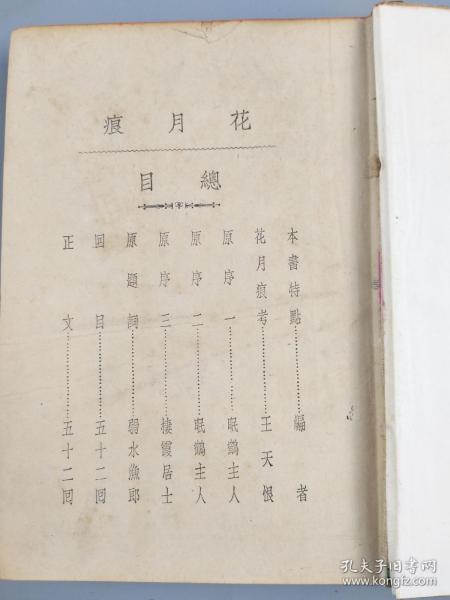 花月痕
總目
本書特點⋯⋯⋯⋯編者
花月痕考⋯⋯⋯⋯王天恨
原序一⋯⋯⋯⋯眠鶴主人
原序二⋯⋯⋯⋯眠鶴主人
原序三⋯⋯⋯⋯棲霞居士
原題詞⋯⋯⋯⋯弱水漁郎
回目⋯⋯⋯⋯五十二回
正文⋯⋯⋯⋯五十二回
孔夫子旧书网
www.kongfz.com